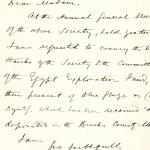 Dear Madam,
At the Annual General Mee
of the above Society, held
I was requested to convey the b
thanks of the Society the Committee
of the Egypt Exploration Fund,
their present of
which has been received &
deposited in the Bucks County
I am
faithfully